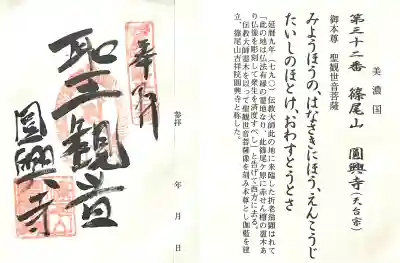 美濃国
第三十二番　篠尾山　圓興寺(天台宗)
御本尊　聖観世音菩薩
みようほうの、はなさきにほう、えんこうじ
たいしのほとけ、おわすとうとさ
「延暦九年（七九〇）伝教大師此の地に来臨した折老翁顕はれて
「此の地は仏法有縁の霊地なり、此篠尾ケ原に赤せん檀の霊木あ
り仏像を彫刻して衆生を済度すべし」と告げて西方に去る。
伝教大師霊木を以って聖観世音菩薩像を刻み本尊とし伽藍を建
立、篠尾山吉祥院圓興寺と称した。
参拝　年　月　日
奉拝
聖観音
圓興寺